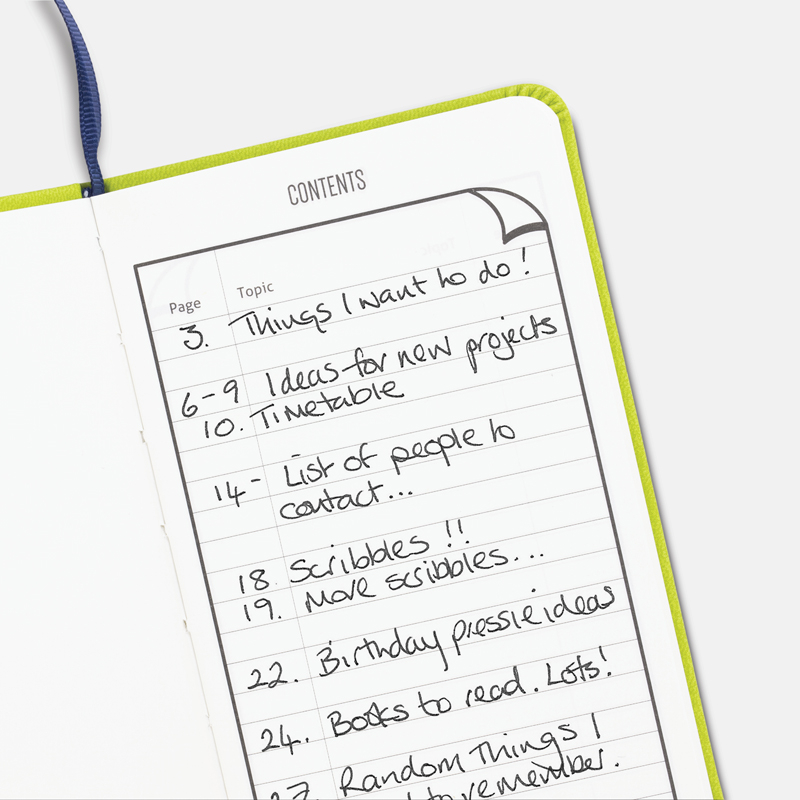 CONTENTS
Page Topic
3. Things I want to do!
6-9 Ideas for new projects
10. Timetable
14- List of people to
contact...
18 Scribbles !!
19. More scribbles...
22. Birthday pressie ideas
24. Books to read. Lots!
27. Random Things I
to remember.